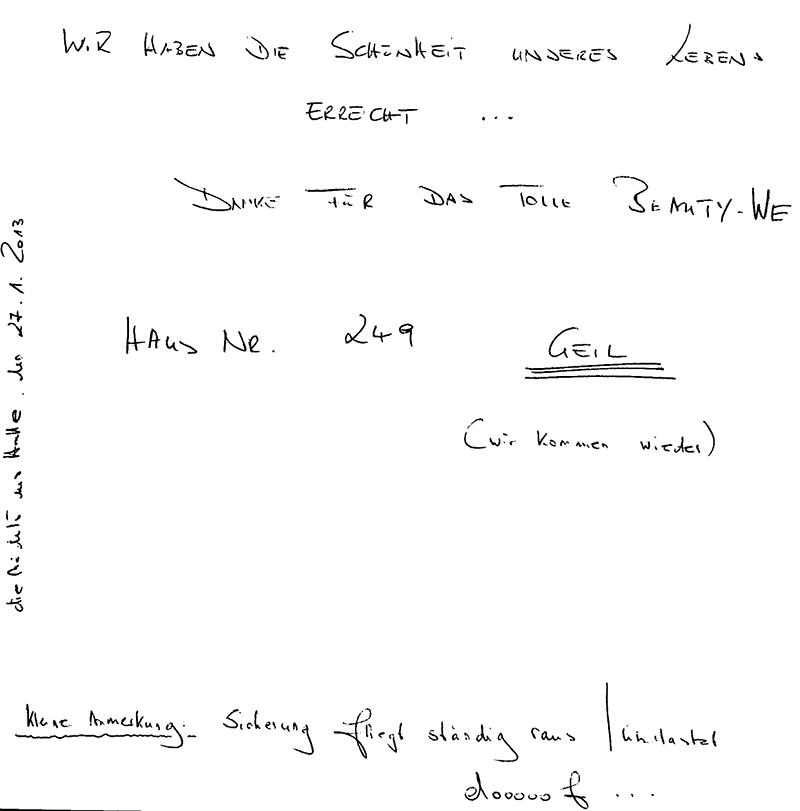 WIR HABEN DIE SCHÖNHEIT UNSERES LEBENS
ERREICHT ...
DANKE FÜR DAS TOLLE BEAUTY-WE
HAUS NR. 249
GEIL
(wir kommen wieder)
die aus Halle, den 27.1.2013
kleine Anmerkung: Sicherung fliegt ständig raus
dooooof ...